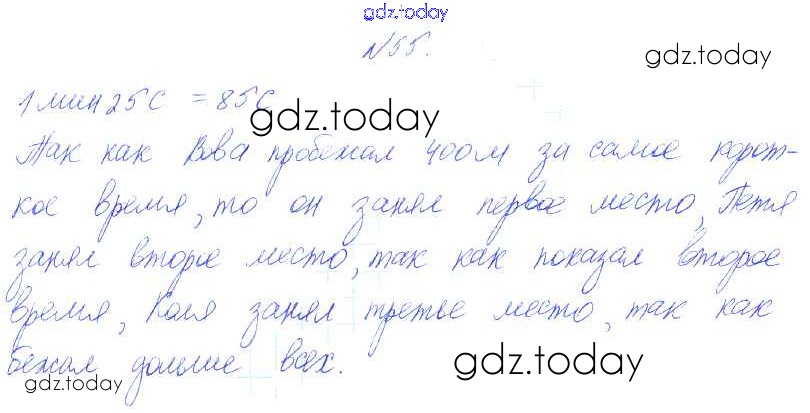 gdz.today
N55.
gdz.today
1 мин 25 с = 85 с
gdz.today
Так как Вова пробежал 400 м за самое корот-
кое время, то он занял первое место, Петя
занял второе место, так как показал второе
время, Коля занял третье место, так как
бежал дольше всех.
gdz.today
gdz.today